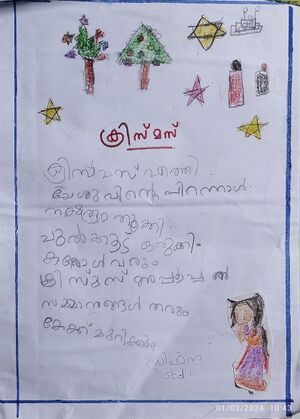 ക്രിസ്മസ്
ക്രിസ്മസ് വന്നെത്തി
യേശുവിന്റെ പിറന്നാൾ
നക്ഷത്രം തൂക്കി
പുൽക്കൂട് ഒരുക്കി
കരോൾ വരും
ക്രിസ്മസ് അപ്പൂപ്പൻ
സമ്മാനങ്ങൾ തരും
കേക്ക് മുറിക്കും
Std 1
01/03/2024 10:43